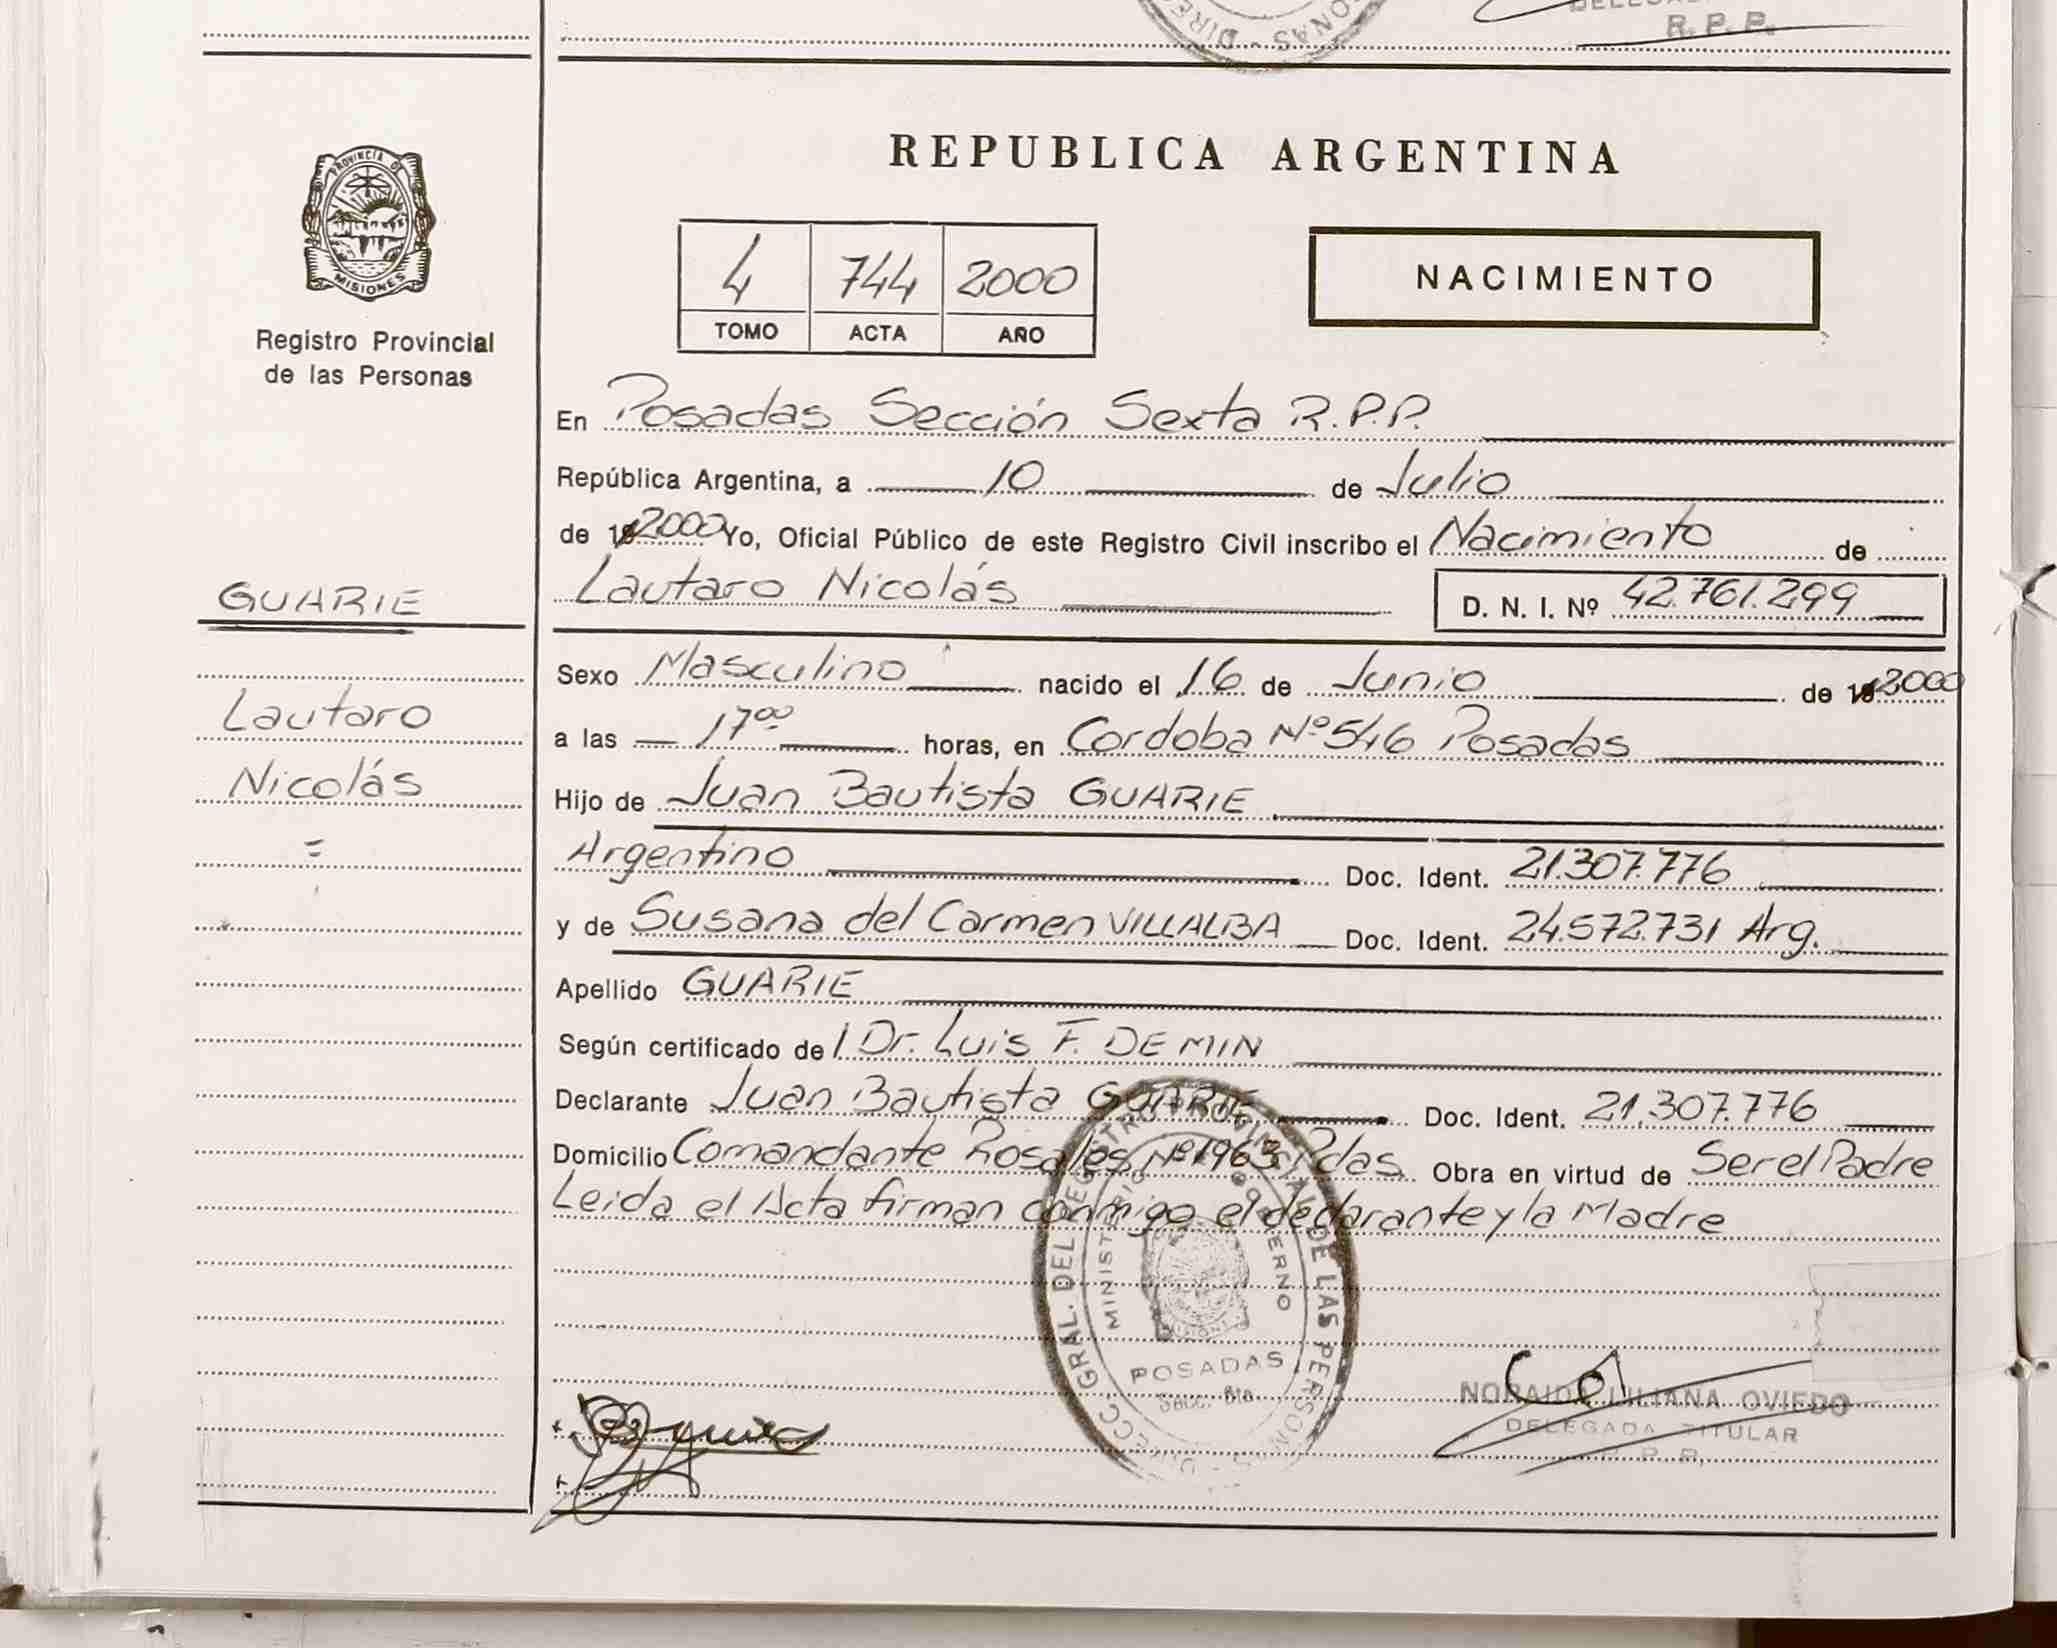 R. P. P.
REPUBLICA ARGENTINA
PROVINCIA DE
MISIONES
Registro Provincial
de las Personas
4 744 2000
TOMO ACTA AÑO
NACIMIENTO
En Posadas Sección Sexta R.P.P.
República Argentina, a 10 de Julio
de 2000 Yo, Oficial Público de este Registro Civil inscribo el Nacimiento de
GUARIE
Lautaro Nicolás D. N. I. Nº 42.761.299
Lautaro
Nicolás
=
Sexo Masculino nacido el 16 de Junio de 2000
a las 17⁰⁰ horas, en Cordoba Nº 546 Posadas
Hijo de Juan Bautista GUARIE
Argentino Doc. Ident. 21.307.776
y de Susana del Carmen VILLALBA Doc. Ident. 24.572.731 Arg.
Apellido GUARIE
Según certificado de Dr. Luis F. DE MIN
Declarante Juan Bautista GUARIE Doc. Ident. 21.307.776
Domicilio Comandante Rosales Nº 1963 Pdas. Obra en virtud de Ser el Padre
Leida el Acta firman conmigo el declarante y la Madre
DIRECC. GRAL. DEL REGISTRO PROVINCIAL DE LAS PERSONAS
MINISTERIO DE GOBIERNO
POSADAS
Secc. 6ta.
NORAIDA LILIANA OVIEDO
DELEGADA TITULAR
R. P. P.